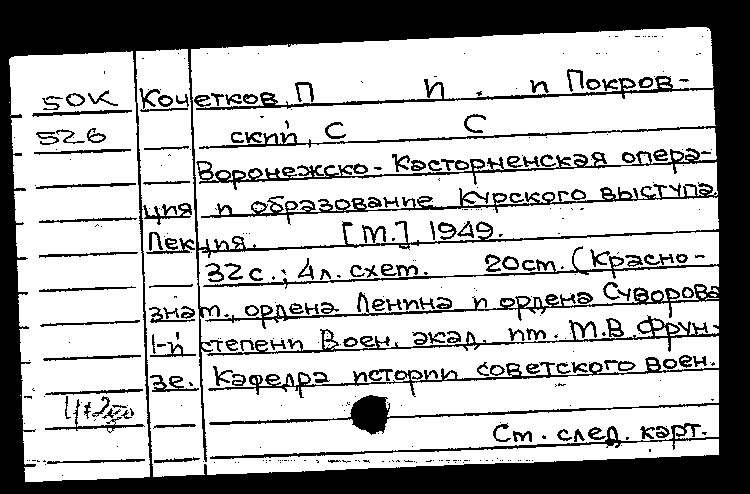 50К Кочетков, П П. и Покров-
526 ский, С С
Воронежско-Касторненская опера-
ция и образование Курского выступа.
Лекция. [М.], 1949.
32с.; 4л. схем. 20см. (Красно-
знам., ордена Ленина и ордена Суворова
1-й степени Воен. акад. им. М.В. Фрун-
зе. Кафедра истории советского воен.
См. след. карт.